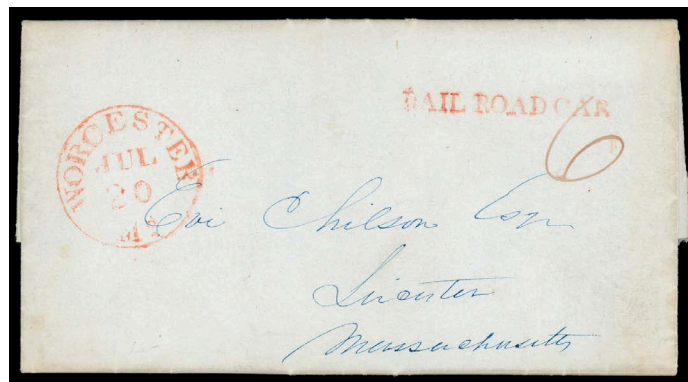 RAIL ROAD CAR
6
WORCESTER
JUL
20
Evi Chilson Esq
Leicester
Massachusetts